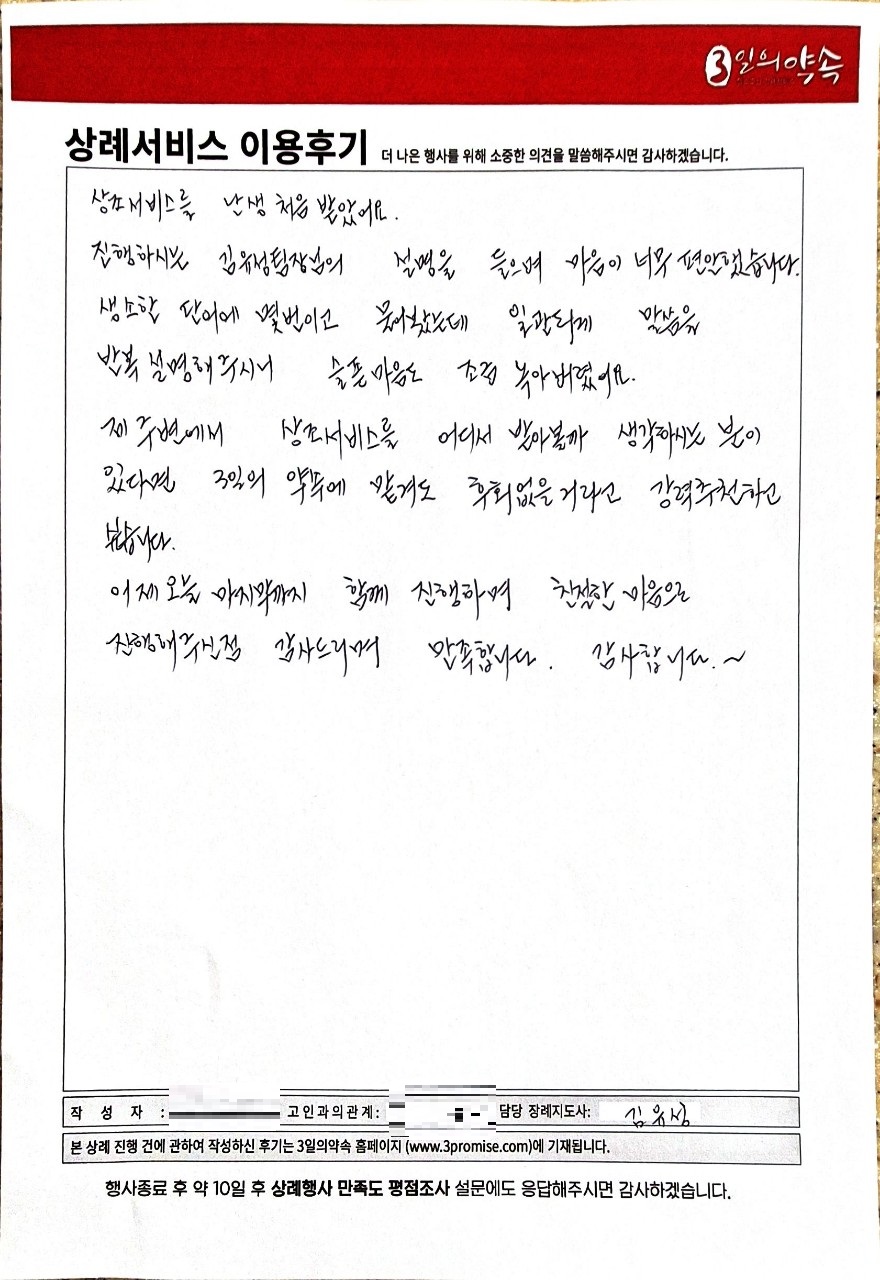 3일의약속
상례서비스 이용후기 더 나은 행사를 위해 소중한 의견을 말씀해주시면 감사하겠습니다.
상조서비스를 난생 처음 받았어요.
진행하시는 김유성팀장님의 설명을 들으며 마음이 너무 편안했습니다.
생소한 단어에 몇번이고 물어봤는데 일관되게 말씀을
반복 설명해주시니 슬픈마음도 조금 녹아버렸어요.
제 주변에서 상조서비스를 어디서 받아볼까 생각하시는 분이
있다면 3일의 약속에 맡겨도 후회없을거라고 강력추천하고
봅니다.
어제 오늘 마지막까지 함께 진행하며 친절한 마음으로
진행해주신점 감사드리며 만족합니다. 감사합니다.~
작 성 자 : 고인과의관계: 담당 장례지도사: 김유성
본 상례 진행 건에 관하여 작성하신 후기는 3일의약속 홈페이지 (www.3promise.com)에 기재됩니다.
행사종료 후 약 10일 후 상례행사 만족도 평점조사 설문에도 응답해주시면 감사하겠습니다.